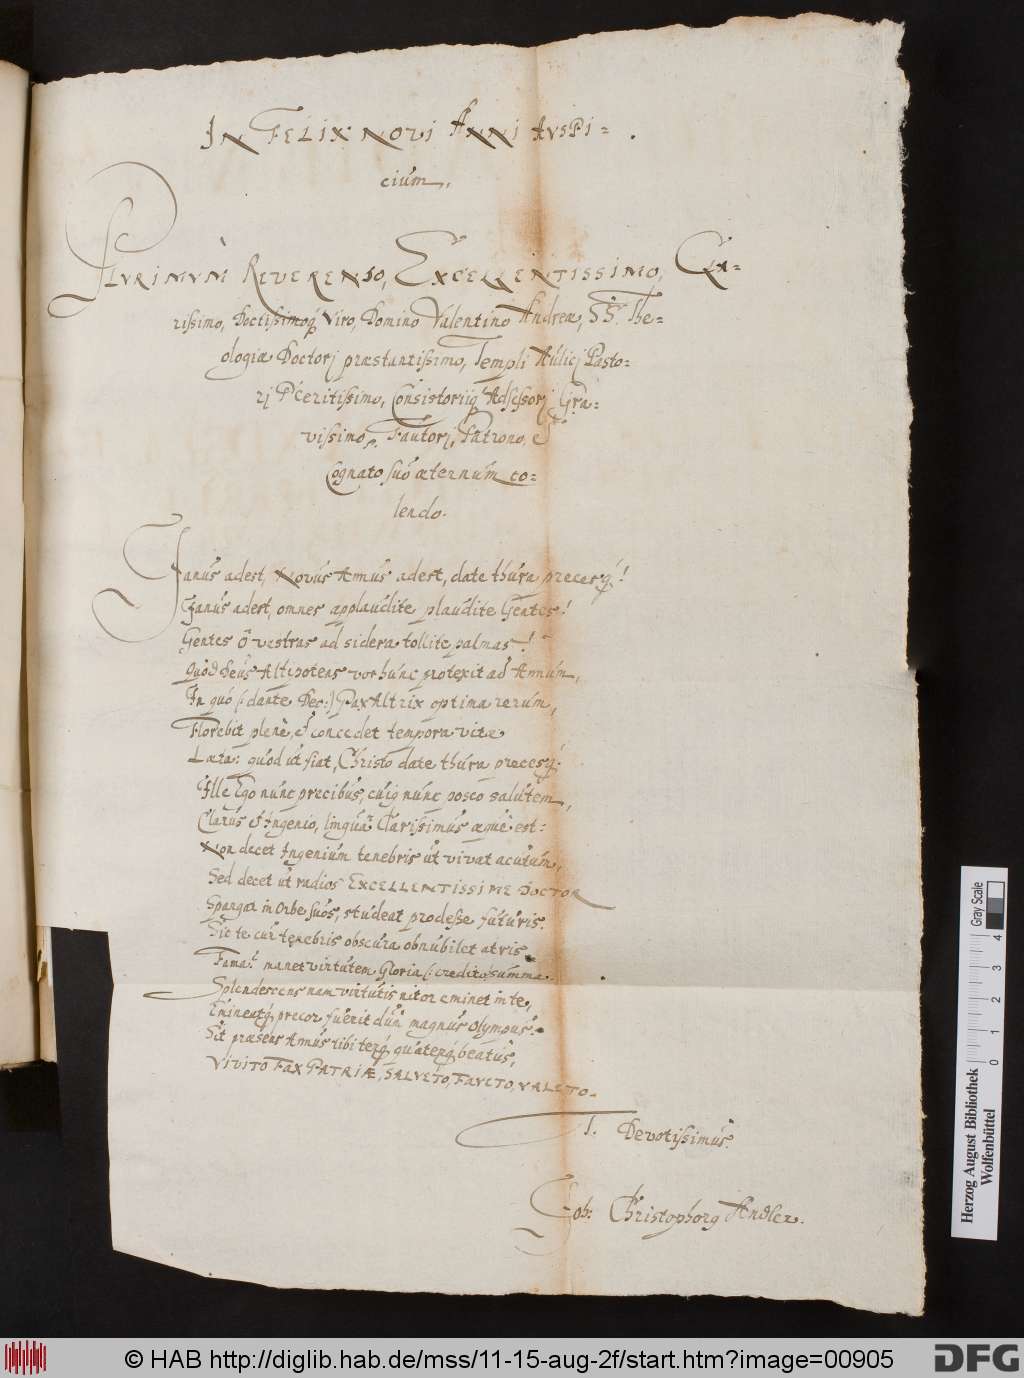 IN FELIX NOVI ANNI AVSPI=
cium.
PLVRIMVM REVERENDO, EXCELLENTISSIMO, Cla=
rissimo, Doctissimoq́ Viro, Domino Valentino Andreæ, SS. The=
ologiæ Doctorj præstantissimo, Templi Aulicj Pasto=
rj Peritissimo, Consistoriiq́ Adsessorj Gra=
vissimo, Fautorj, Patrono, &
Cognato suo æternum co=
lendo.
Janus adest, Novus Annus adest, date thura precesq́!
Janus adest, omnes applaudite plaudite Gentes!
Gentes ô vestras ad sidera tollite palmas!
Quòd Deus Altipotens vos hunc protexit ad Annum,
In quo (: dante Deo:) Pax Altrix optima rerum,
Florebit plenè, & concedet tempora vitæ
Læta: quod ut fiat, Christo date thura precesq́.
Ille Ego nunc precibus, cuiq nunc posco salutem,
Clarus & Ingenio, linguâ Clarissimus æquè est:
Non decet Ingenium tenebris ut vivat acutum,
Sed decet ut radios EXCELLENTISSIME DOCTOR
Spargat in Orbe suos, studeat prodesse futuris.
Sic te cur tenebris obscura obnubilet atris
Fama? manet virtutem Gloria (: credito:) summa.
Splendescens nam virtutis nitor eminet in te,
Emineatq́, precor fuerit dum magnus Olympus.
Sit præsens Annus tibi terq́, quaterq́ beatus,
VIVITO FAX PATRIÆ, SALVETO, FAVETO, VALETO.
T. Devotissimus
Joh. Christophorq Andler.
Herzog August Bibliothek
Wolfenbüttel
Gray Scale
0 1 2 3 4
© HAB http://diglib.hab.de/mss/11-15-aug-2f/start.htm?image=00905
DFG